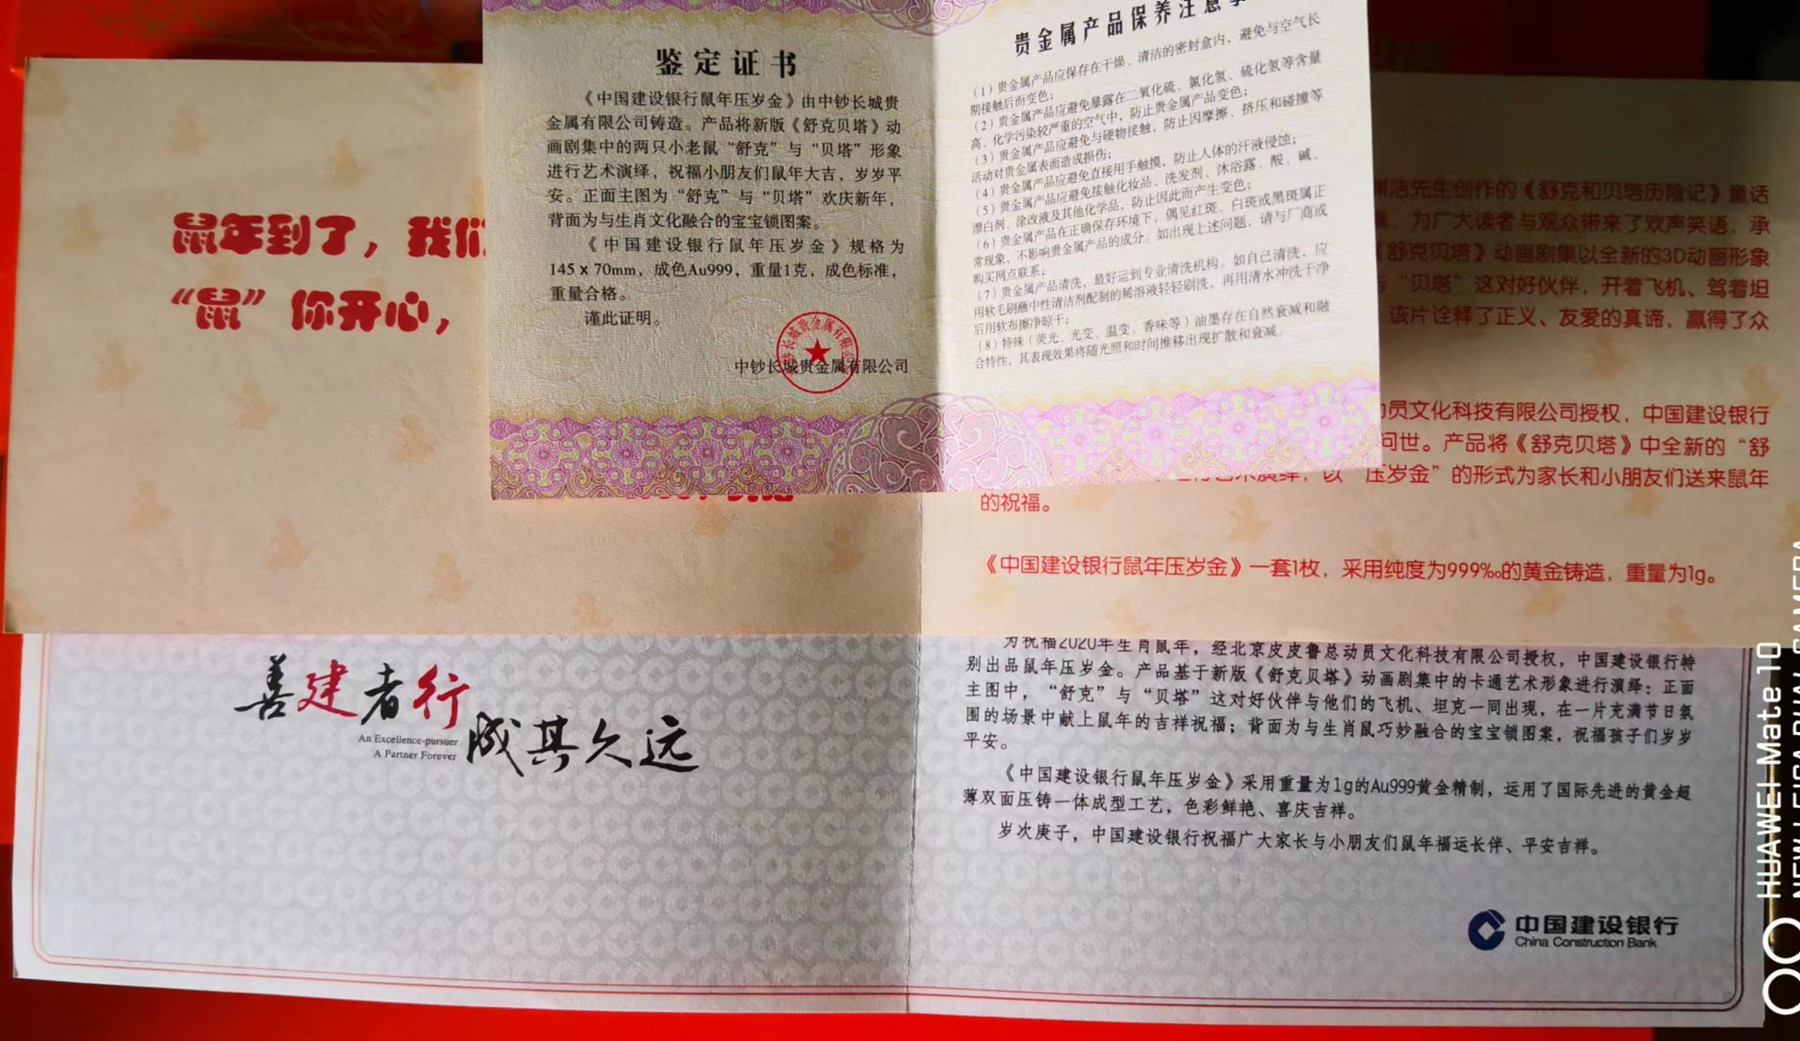 鉴定证书
《中国建设银行鼠年压岁金》由中钞长城贵
金属有限公司铸造。产品将新版《舒克贝塔》动
画剧集中的两只小老鼠“舒克”与“贝塔”形象
进行艺术演绎，祝福小朋友们鼠年大吉，岁岁平
安。正面主图为“舒克”与“贝塔”欢庆新年，
背面为与生肖文化融合的宝宝锁图案。
《中国建设银行鼠年压岁金》规格为
145 x 70mm，成色Au999，重量1克，成色标准，
重量合格。
谨此证明。
中钞长城贵金属有限公司
贵金属产品保养注意
（1）贵金属产品应保存在干燥、清洁的密封盒内，避免与空气长
期接触后而变色；
（2）贵金属产品应避免暴露在二氧化硫、氯化氢、硫化氢等含量
高、化学污染较严重的空气中，防止贵金属产品变色；
（3）贵金属产品应避免与硬物接触，防止因摩擦、挤压和碰撞等
活动对贵金属表面造成损伤；
（4）贵金属产品应避免直接用手触摸，防止人体的汗液侵蚀；
（5）贵金属产品应避免接触化妆品、洗发剂、沐浴露、酸、碱、
漂白剂、涂改液及其他化学品，防止因此而产生变色；
（6）贵金属产品在正确保存环境下，偶见红斑、白斑或黑斑属正
常现象，不影响贵金属产品的成分。如出现上述问题，请与厂商或
购买网点联系；
（7）贵金属产品清洗，最好运到专业清洗机构。如自己清洗，应
用软毛刷蘸中性清洁剂配制的稀溶液轻轻刷洗，再用清水冲洗干净
后用软布擦净晾干；
（8）特殊（荧光、光变、温变、香味等）油墨存在自然衰减和融
合特性，其表现效果将随光照和时间推移出现扩散和衰减。
鼠年到了，我们
“鼠”你开心，
洁先生创作的《舒克和贝塔历险记》童话
，为广大读者与观众带来了欢声笑语，承
《舒克贝塔》动画剧集以全新的3D动画形象
“贝塔”这对好伙伴，开着飞机、驾着坦
该片诠释了正义、友爱的真谛，赢得了众
员文化科技有限公司授权，中国建设银行
问世。产品将《舒克贝塔》中全新的“舒
压岁金”的形式为家长和小朋友们送来鼠年
的祝福。
《中国建设银行鼠年压岁金》一套1枚，采用纯度为999‰的黄金铸造，重量为1g。
善建者行
成其久远
An Excellence-pursuer
A Partner Forever
为祝福2020年生肖鼠年，经北京皮皮鲁总动员文化科技有限公司授权，中国建设银行特
别出品鼠年压岁金。产品基于新版《舒克贝塔》动画剧集中的卡通艺术形象进行演绎：正面
主图中，“舒克”与“贝塔”这对好伙伴与他们的飞机、坦克一同出现，在一片充满节日氛
围的场景中献上鼠年的吉祥祝福；背面为与生肖鼠巧妙融合的宝宝锁图案，祝福孩子们岁岁
平安。
《中国建设银行鼠年压岁金》采用重量为1g的Au999黄金精制，运用了国际先进的黄金超
薄双面压铸一体成型工艺，色彩鲜艳、喜庆吉祥。
岁次庚子，中国建设银行祝福广大家长与小朋友们鼠年福运长伴、平安吉祥。
中国建设银行
China Construction Bank
HUAWEI Mate 10
NEW LEICA DUAL CAMERA